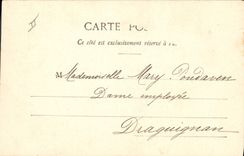 CARTE PO
Ce côté est exclusivement réservé à
Mademoiselle Mary Poudaven
Dame employée
Draguignan